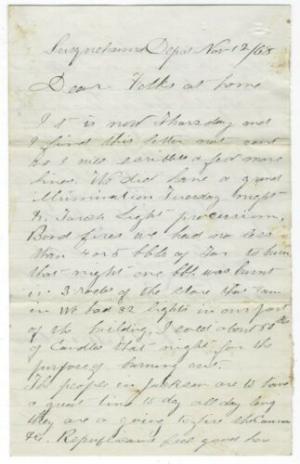 Susquehanna Depot Nov 12/68
Dear Folks at home
It is now Thursday and
I find this letter not sent
so I will scribble a few more
lines. We did have a grand
illumination Tuesday night
Torch Light procession,
Bond fires we had no less
than 4 or 5 bbls of Tar to burn
that night one bbl was burnt
in 3 rods of the store that I am
in We had 32 lights in our part
of the building, I sold about 50 lbs
of Candles that night for the
purpose of burning
The people in Jackson are to have
a great time to day all day long
they are a going to fire the Cannon
&c. Republicans feel good here